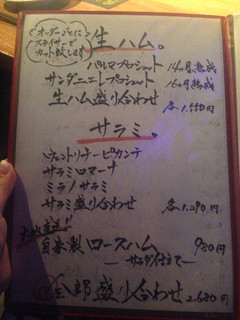 オーダーごとに
スライサーで
カット致します
生ハム。
パルマプロシュット 14ヵ月熟成
サンダニエレプロシュット 16ヵ月熟成
生ハム盛り合わせ 各1.550円
サラミ。
ヴェントリチーナピカンテ
サラミロマーナ
ミラノサラミ
サラミ盛り合わせ 各1.290円
自家製ロースハム 980円
サラダ仕立て
全部盛り合わせ 2.680円